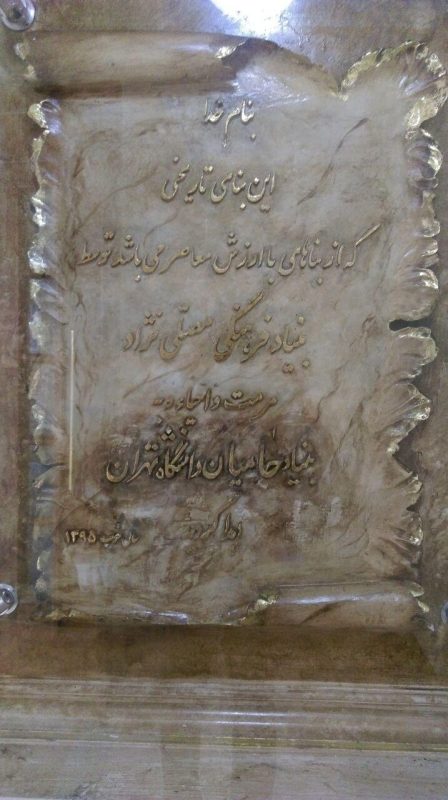 بنام خدا
این بنای تاریخی
که از بناهای با ارزش معاصر می باشد توسط
بنیاد فرهنگی مصلی نژاد
مرمت و احیاء و به
بنیاد حامیان دانشگاه تهران
اهدا گردید
سال ۱۳۹۵